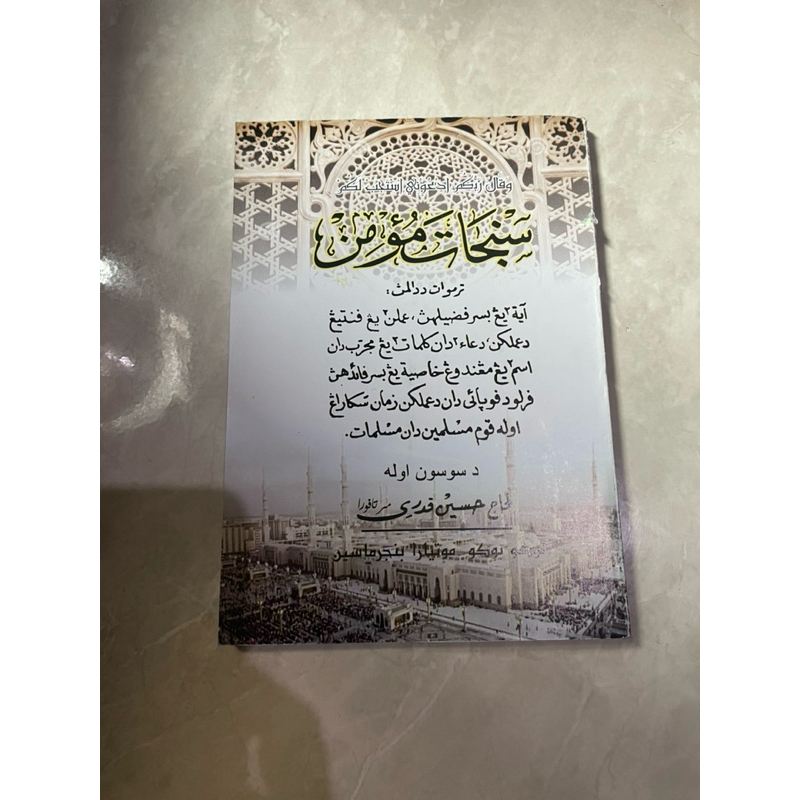 وَقَالَ رَبُّكُمُ ادْعُوْنِيْ اَسْتَجِبْ لَكُمْ
سنجات مؤمن
ترموات ددالمڽ:
آية٢ يڠ بسر فضيلهڽ، عملن٢ يڠ فنتيڠ
دعملكن، دعاء٢ دان كلمات٢ يڠ مجرّب دان
اسم٢ يڠ مڠندوڠ خاصية يڠ بسر فائدهڽ
فرلو دفوپائي دان دعملكن زمان سكارڠ
اوله قوم مسلمين دان مسلمات.
د سوسون اوله
حاج حسين قدري مرتافورا
توكو موتيارا بنجرماسين